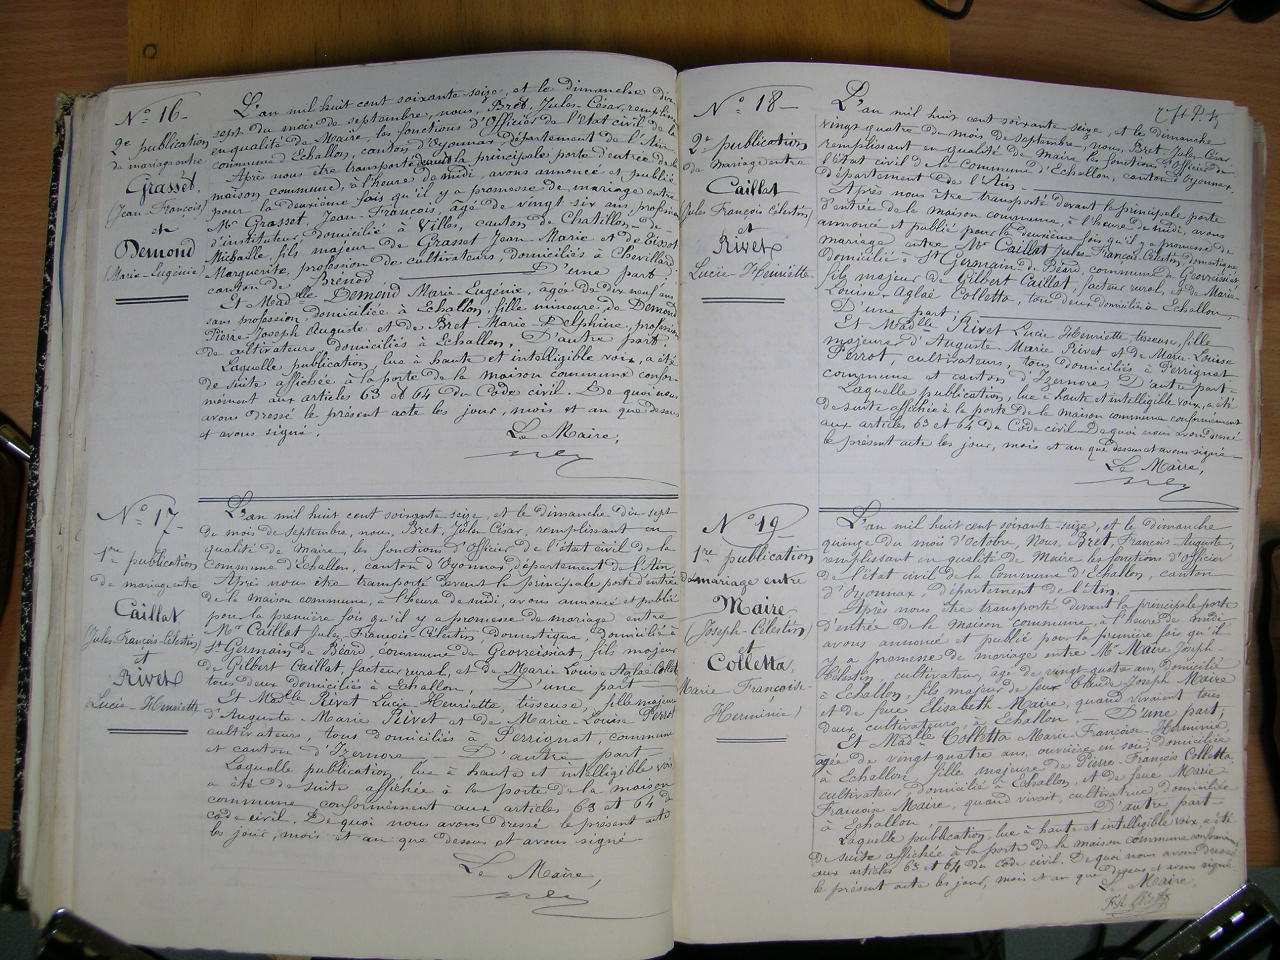 N° 16
2e publication
de mariage entre
Grasset
(Jean-François)
et
Demond
(Marie-Eugénie)
L'an mil huit cent soixante seize, et le dimanche dix
sept du mois de septembre, nous, Bret, Jules-César, remplissant
en qualité de Maire, les fonctions d'Officier de l'Etat civil de la
commune d'Echallon, canton d'Oyonnax, département de l'Ain
Après nous être transporté devant la principale porte d'entrée de la
maison commune, à l'heure de midi, avons annoncé et publié
pour la deuxième fois qu'il y a promesse de mariage entre
Mr Grasset, Jean-François, âgé de vingt six ans, profession
d'instituteur, domicilié à Villes, canton de Chatillon-de-
Michaille, fils majeur de Grasset Jean Marie et de
Marguerite, profession de cultivateurs, domiciliés à Chevillard,
canton de Brenod D'une part
Et Madelle Demond Marie-Eugénie, âgée de dix neuf ans
sans profession, domiciliée à Echallon, fille mineure de Demond
Pierre-Joseph Auguste et de Bret Marie-Delphine, profession
de cultivateurs, domiciliés à Echallon. D'autre part,
Laquelle publication, lue à haute et intelligible voix, a été
de suite affichée à la porte de la maison commune confor-
mément aux articles 63 et 64 du Code civil. De quoi nous
avons dressé le présent acte les jour, mois et an que dessus
et avons signé.
Le Maire,
N° 17
1re publication
de mariage entre
Caillat
(Jules-François-Célestin)
et
Rivet
Lucie-Henriette
L'an mil huit cent soixante seize, et le dimanche dix sept
du mois de septembre, nous, Bret, Jules César, remplissant en
qualité de Maire, les fonctions d'Officier de l'état civil de la
Commune d'Echallon, canton d'Oyonnax, département de l'Ain,
Après nous être transporté devant la principale porte d'entrée
de la maison commune, à l'heure de midi, avons annoncé et publié
pour la première fois qu'il y a promesse de mariage entre
Mr Caillat Jules François-Célestin domestique, domicilié à
St Germain de Béard, commune de Geovreissiat, fils majeur
de Gilbert Caillat, facteur rural, et de Marie Louise Aglaé Colletta
tous deux domiciliés à Echallon, D'une part
Et Madelle Rivet Lucie Henriette, tisseuse, fille majeure
d'Auguste-Marie Rivet et de Marie-Louise Perrot
cultivateurs, tous domiciliés à Perrignat, commune
et canton d'Izernore D'autre part
Laquelle publication, lue à haute et intelligible voix
a été de suite affichée à la porte de la maison
commune conformément aux articles 63 et 64 du
code civil. De quoi nous avons dressé le présent acte
les jour, mois et an que dessus et avons signé
Le Maire,
N° 18
2e publication
de mariage entre
Caillat
Jules François Célestin)
et
Rivet
Lucie-Henriette
L'an mil huit cent soixante seize, et le dimanche
vingt quatre du mois de septembre, nous, Bret Jules César
remplissant en qualité de maire les fonctions d'officier de
l'état civil de la commune d'Echallon, canton d'Oyonnax,
département de l'Ain.
Après nous être transporté devant la principale porte
d'entrée de la maison commune, à l'heure de midi, avons
annoncé et publié pour la deuxième fois qu'il y a promesse de
mariage entre Mr Caillat Jules François-Célestin domestique
domicilié à St Germain de Béard, commune de Geovreissiat
fils majeur de Gilbert Caillat, facteur rural, et de Marie-
Louise-Aglaé Colletta, tous deux domiciliés à Echallon,
D'une part,
Et Madelle Rivet Lucie Henriette, tisseuse, fille
majeure d'Auguste-Marie Rivet et de Marie-Louise
Perrot, cultivateurs, tous domiciliés à Perrignat
commune et canton d'Izernore, D'autre part
Laquelle publication, lue à haute et intelligible voix, a été
de suite affichée à la porte de la maison commune conformément
aux articles 63 et 64 du Code civil De quoi nous avons dressé
le présent acte les jour, mois et an que dessus et avons signé
Le Maire,
N° 19
1re publication
de mariage entre
Maire
(Joseph-Célestin)
et
Colletta
Marie-Françoise-
Herminie)
L'an mil huit cent soixante-seize, et le dimanche
quinze du mois d'octobre, Nous, Bret François-Auguste,
remplissant en qualité de Maire les fonctions d'officier
de l'état civil de la Commune d'Echallon, canton
d'Oyonnax département de l'Ain.
Après nous être transporté devant la principale porte
d'entrée de la maison commune, à l'heure de midi
avons annoncé et publié pour la première fois qu'il
y a promesse de mariage entre Mr Maire Joseph-
Célestin cultivateur, âgé de vingt quatre ans, domicilié
à Echallon, fils majeur de feux Claude Joseph Maire
et de feue Elisabeth Maire, quand vivaient tous
deux cultivateurs, à Echallon. D'une part,
Et Madelle Colletta Marie-Françoise-Herminie,
âgée de vingt quatre ans, ouvrière en soie, domiciliée
à Echallon, fille majeure de Pierre-François Colletta,
cultivateur, domicilié à Echallon, et de feue Marie
Françoise Maire, quand vivait, cultivatrice domiciliée
à Echallon D'autre part
Laquelle publication, lue à haute et intelligible voix, a été
de suite affichée à la porte de la maison commune conformément
aux articles 63 et 64 du code civil. De quoi nous avons dressé
le présent acte les jour, mois et an que dessus et avons signé
Le Maire,